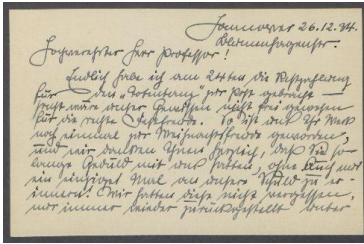 Hannover 26.12.34.
Blumenhagenstr.
Hochverehrter Herr Professor!
Endlich habe ich am 24ten die Restzahlung
für den „Totentanz" per Post gebracht –
sonst wäre unser Gewissen nicht frei gewesen
für die rechte Festfreude. So ist das Ihr Werk
noch einmal zur Weihnachtsfreude geworden,
und wir danken Ihnen herzlich, daß Sie so
lange Geduld mit uns hatten, ohne auch nur
ein einziges Mal an unsere Schuld zu er-
innern! Wir hatten diese nicht vergessen,
nur immer wieder zurückgestellt unter